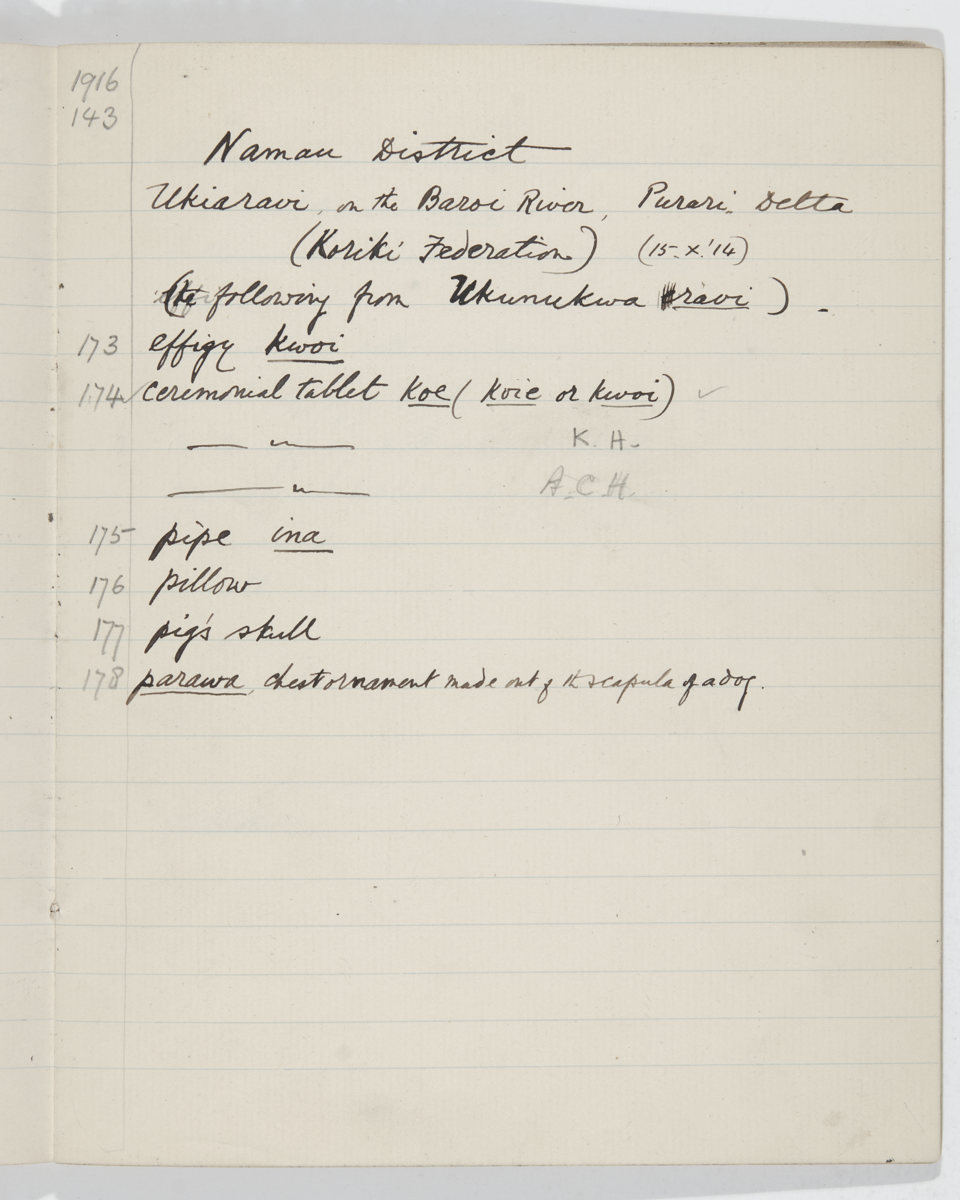 1916
143
Namau District
Ukiaravi, on the Baroi River, Purari Delta
(Koriki Federation) (15.X.'14)
(the following from Ukunukwa ravi) -
173 effigy kwoi
174 ✓ ceremonial tablet Koe (Koie or kwoi) ✓
— " — K. H.
— " — A. C. H.
175 pipe ina
176 pillow
177 pig's skull
178 parawa, chest ornament made out of the scapula of a dog.